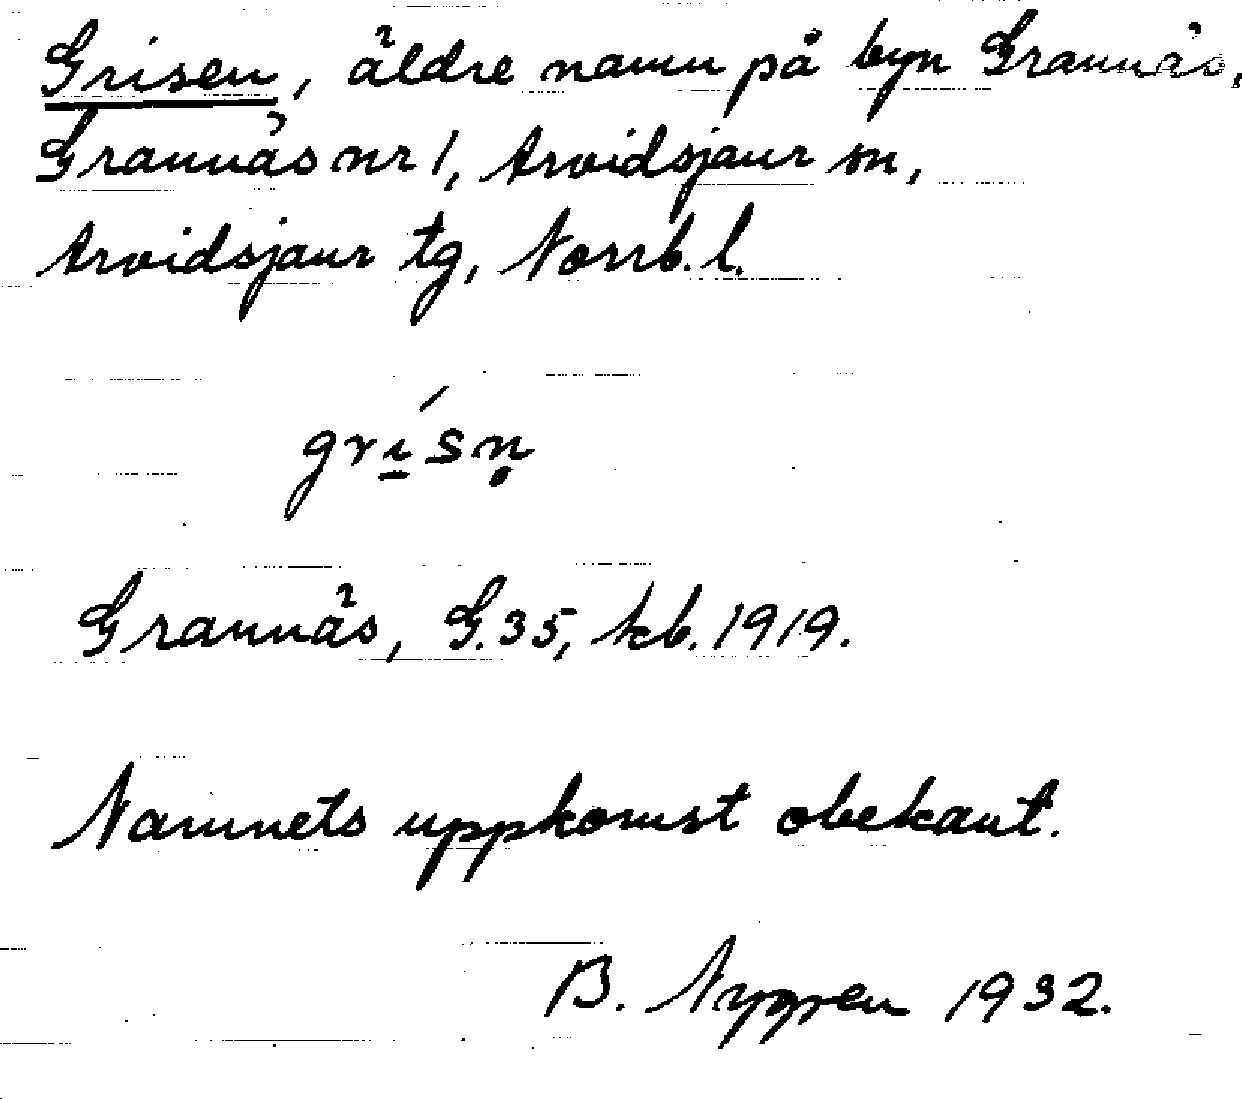 Grisen, äldre namn på byn Grannäs,
Grannäs nr 1, Arvidsjaur sn,
Arvidsjaur tg, Norrb. l.
grí̱sn̥
Grannäs, G. 35, kb. 1919.
Namnets uppkomst obekant.
B. Nygren 1932.